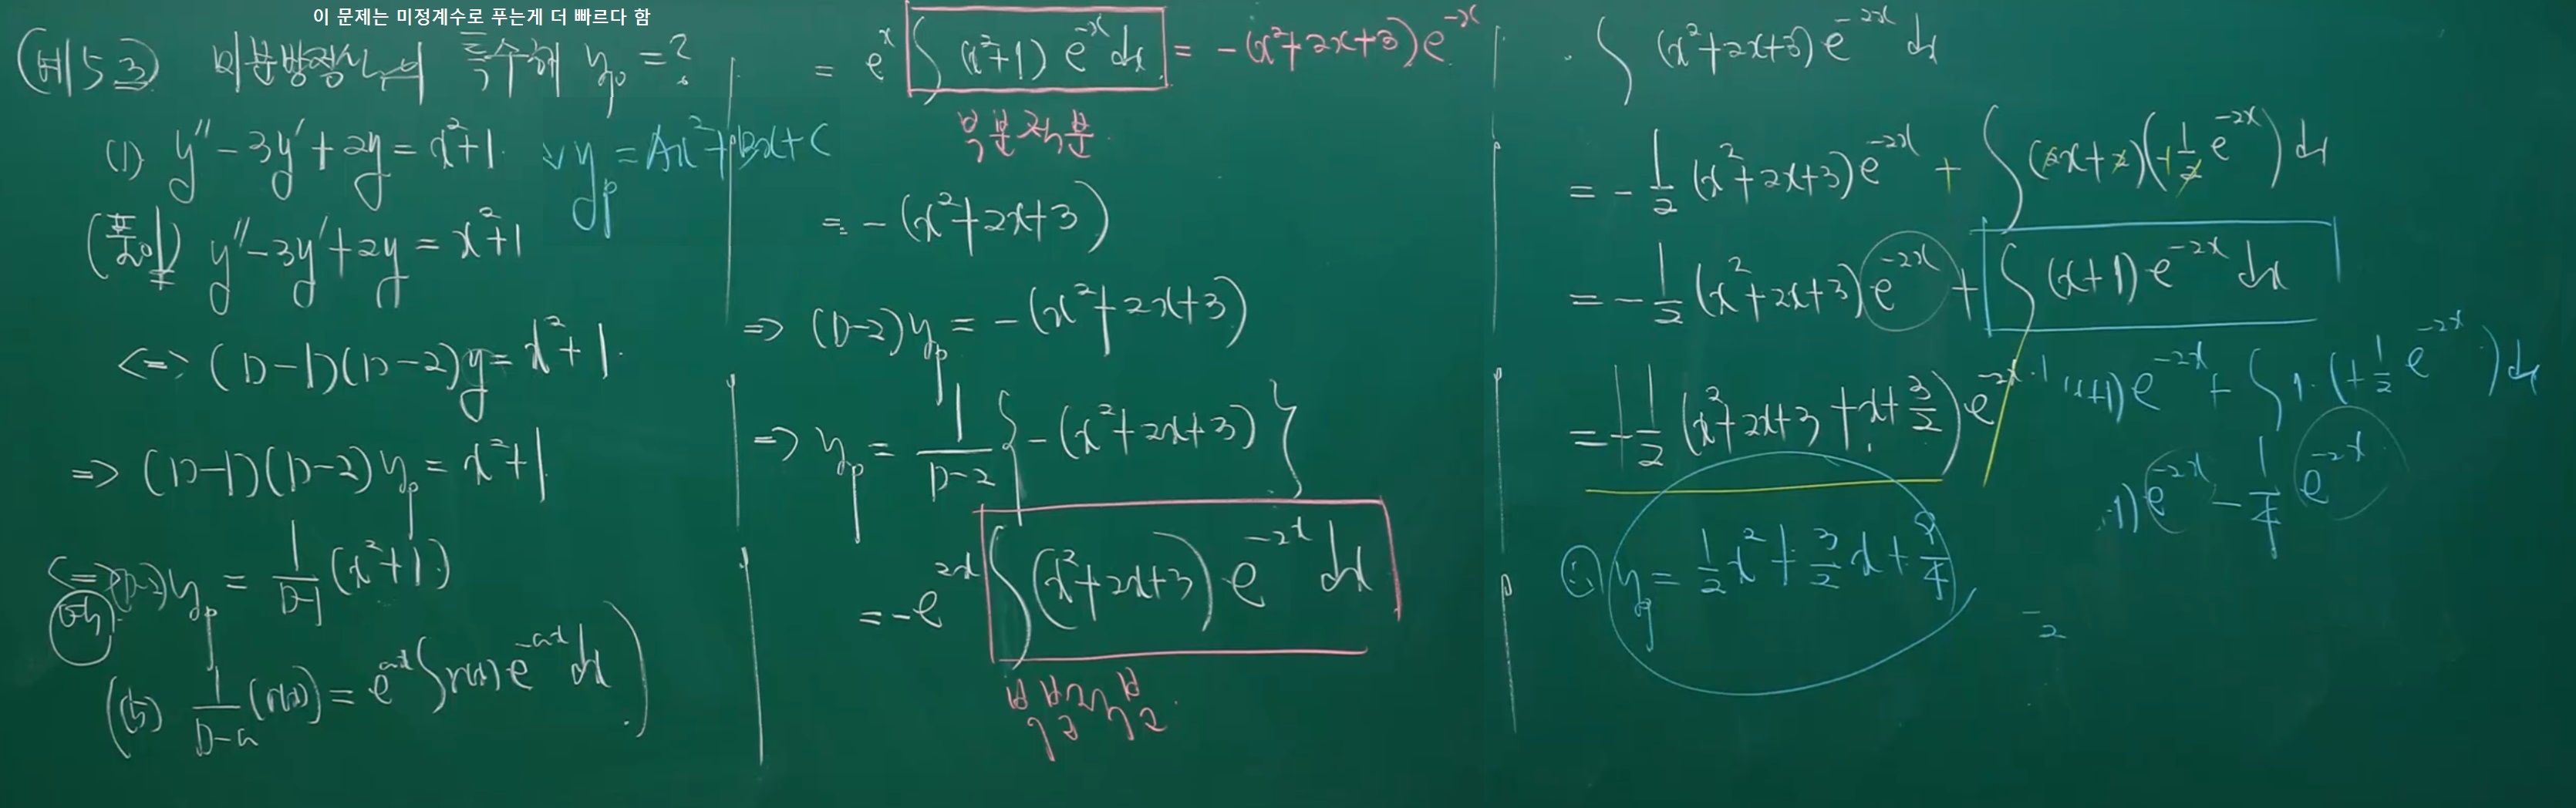 이 문제는 미정계수로 푸는게 더 빠르다 함
(예제 5.3) 미분방정식의 특수해 y_p = ?
(1) y'' - 3y' + 2y = x² + 1. ∨ y_p = Ax² + Bx + C
(풀이) y'' - 3y' + 2y = x² + 1
<=> (D-1)(D-2)y = x² + 1.
=> (D-1)(D-2)y_p = x² + 1
<=> (D-2)y_p = 1/(D-1) (x² + 1)
1/(D-a) (r(x)) = e^{ax} ∫ r(x) e^{-ax} dx )
= e^x ∫ (x²+1) e^{-x} dx = -(x²+2x+3)e^{-x}
부분적분
= -(x²+2x+3)
=> (D-2)y_p = -(x²+2x+3)
=> y_p = 1/(D-2) { -(x²+2x+3) }
= -e^{2x} ∫ (x²+2x+3) e^{-2x} dx
부분적분
∫ (x²+2x+3) e^{-2x} dx
= -1/2 (x²+2x+3)e^{-2x} + ∫ (2x+2)(+1/2 e^{-2x}) dx
= -1/2 (x²+2x+3) e^{-2x} + ∫ (x+1) e^{-2x} dx
= -1/2 (x²+2x+3+x+3/2) e^{-2x}
x+1) e^{-2x} + ∫ 1·(+1/2 e^{-2x}) dx
1) e^{-2x} - 1/4 e^{-2x}
∴ y_p = 1/2 x² + 3/2 x + 9/4